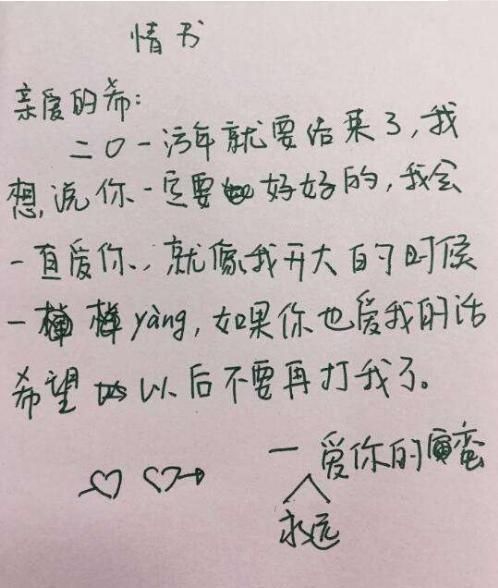 情书
亲爱的希:
二〇一污年就要结菜了,我
想,说你一定要好好的,我会
一直爱你.,就像我开大的时候
一样yàng,如果你也爱我的话
希望以后不要再打我了。
一爱你的寅蛮
永远